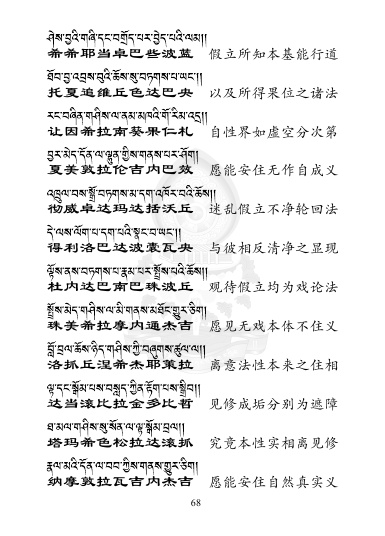 ཤེས་བྱའི་གཞི་དང་བགྲོད་པར་བྱེད་པའི་ལམ།།
希希耶当卓巴些波蓝 假立所知本基能行道
ཐོབ་བྱ་འབྲས་བུའི་ཆོས་སུ་བཏགས་པ་ཡང་།།
托夏追维丘色达巴央 以及所得果位之诸法
རང་བཞིན་གཤིས་ལ་ནམ་མཁའི་གོ་རིམ་འདྲ།།
让因希拉南葵果仁札 自性界如虚空分次第
བྱར་མེད་དོན་ལ་ལྷུན་གྱིས་གནས་པར་ཤོག།
夏美敦拉伦吉内巴效 愿能安住无作自成义
འཁྲུལ་བས་སྒྲོ་བཏགས་མ་དག་འཁོར་བའི་ཆོས།།
彻威卓达玛达括沃丘 迷乱假立不净轮回法
དེ་ལས་ལོག་པ་དག་པའི་སྣང་བ་ཡང་།།
得利洛巴达波囊瓦央 与彼相反清净之显现
ལྟོས་ནས་བཏགས་པ་རྣམ་པར་སྤྲོས་པའི་ཆོས།།
杜内达巴南巴珠波丘 观待假立均为戏论法
སྤྲོས་མེད་གཤིས་ལ་མི་གནས་མཐོང་གྱུར་ཅིག།
珠美希拉摩内通杰吉 愿见无戏本体不住义
བློ་བྲལ་ཆོས་ཉིད་གཤིས་ཀྱི་བཞུགས་ཚུལ་ལ།།
洛抓丘涅希杰耶莱拉 离意法性本来之住相
ལྟ་དང་སྒོམ་པས་བསླད་ཀྱིན་རྟོག་པས་སྒྲིབ།།
达当滚比拉金多比哲 见修成垢分别为遮障
ཐ་མལ་གཤིས་སུ་སོན་ལ་ལྟ་སྒོམ་བྲལ།།
塔玛希色松拉达滚抓 究竟本性实相离见修
རྣལ་མའི་དོན་ལ་བབ་ཀྱིས་གནས་གྱུར་ཅིག།
纳摩敦拉瓦吉内杰吉 愿能安住自然真实义
68